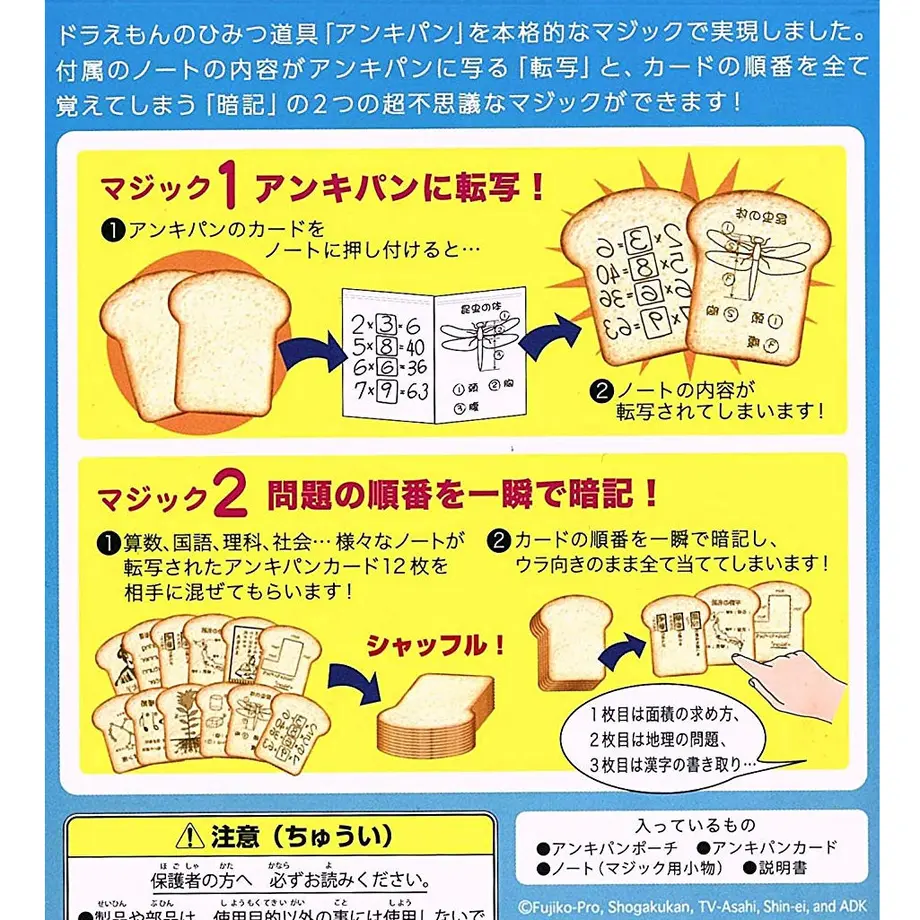 ドラえもんのひみつ道具「アンキパン」を本格的なマジックで実現しました。
付属のノートの内容がアンキパンに写る「転写」と、カードの順番を全て
覚えてしまう「暗記」の2つの超不思議なマジックができます！
マジック1 アンキパンに転写！
❶アンキパンのカードを
ノートに押し付けると…
2×3=6
5×8=40
6×6=36
7×9=63
昆虫の体
①
②
③
①頭 ②胸
③腹
❷ノートの内容が
転写されてしまいます！
マジック2 問題の順番を一瞬で暗記！
❶算数、国語、理科、社会… 様々なノートが
転写されたアンキパンカード12枚を
相手に混ぜてもらいます！
シャッフル！
❷カードの順番を一瞬で暗記し、
ウラ向きのまま全て当ててしまいます！
1枚目は面積の求め方、
2枚目は地理の問題、
3枚目は漢字の書き取り…
⚠注意（ちゅうい）
保護者の方へ 必ずお読みください。
●製品や部品は、使用目的以外の事には使用しないで
入っているもの
●アンキパンポーチ ●アンキパンカード
●ノート（マジック用小物） ●説明書
©Fujiko-Pro, Shogakukan, TV-Asahi, Shin-ei, and ADK